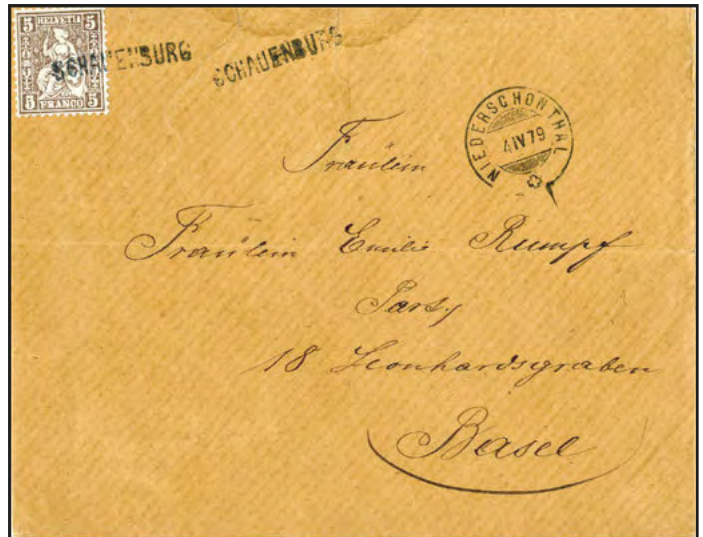 5 HELVETIA 5
5 FRANCO 5
SCHAUENBURG SCHAUENBURG
NIEDERSCHÖNTHAL
4 IV 79
Fräulein
Fräulein Emilie Rumpf
18 Leonhardsgraben
Basel